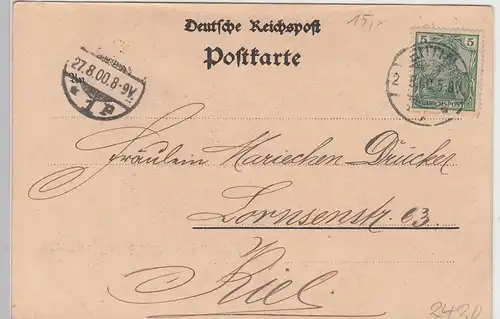 Deutsche Reichspost
Postkarte
15,-
5 5
REICHSPOST
27.8.00.8-9V.
* 1 P
An
Fräulein Mariechen Drücker
Lornsenstr. 63
Kiel
2420